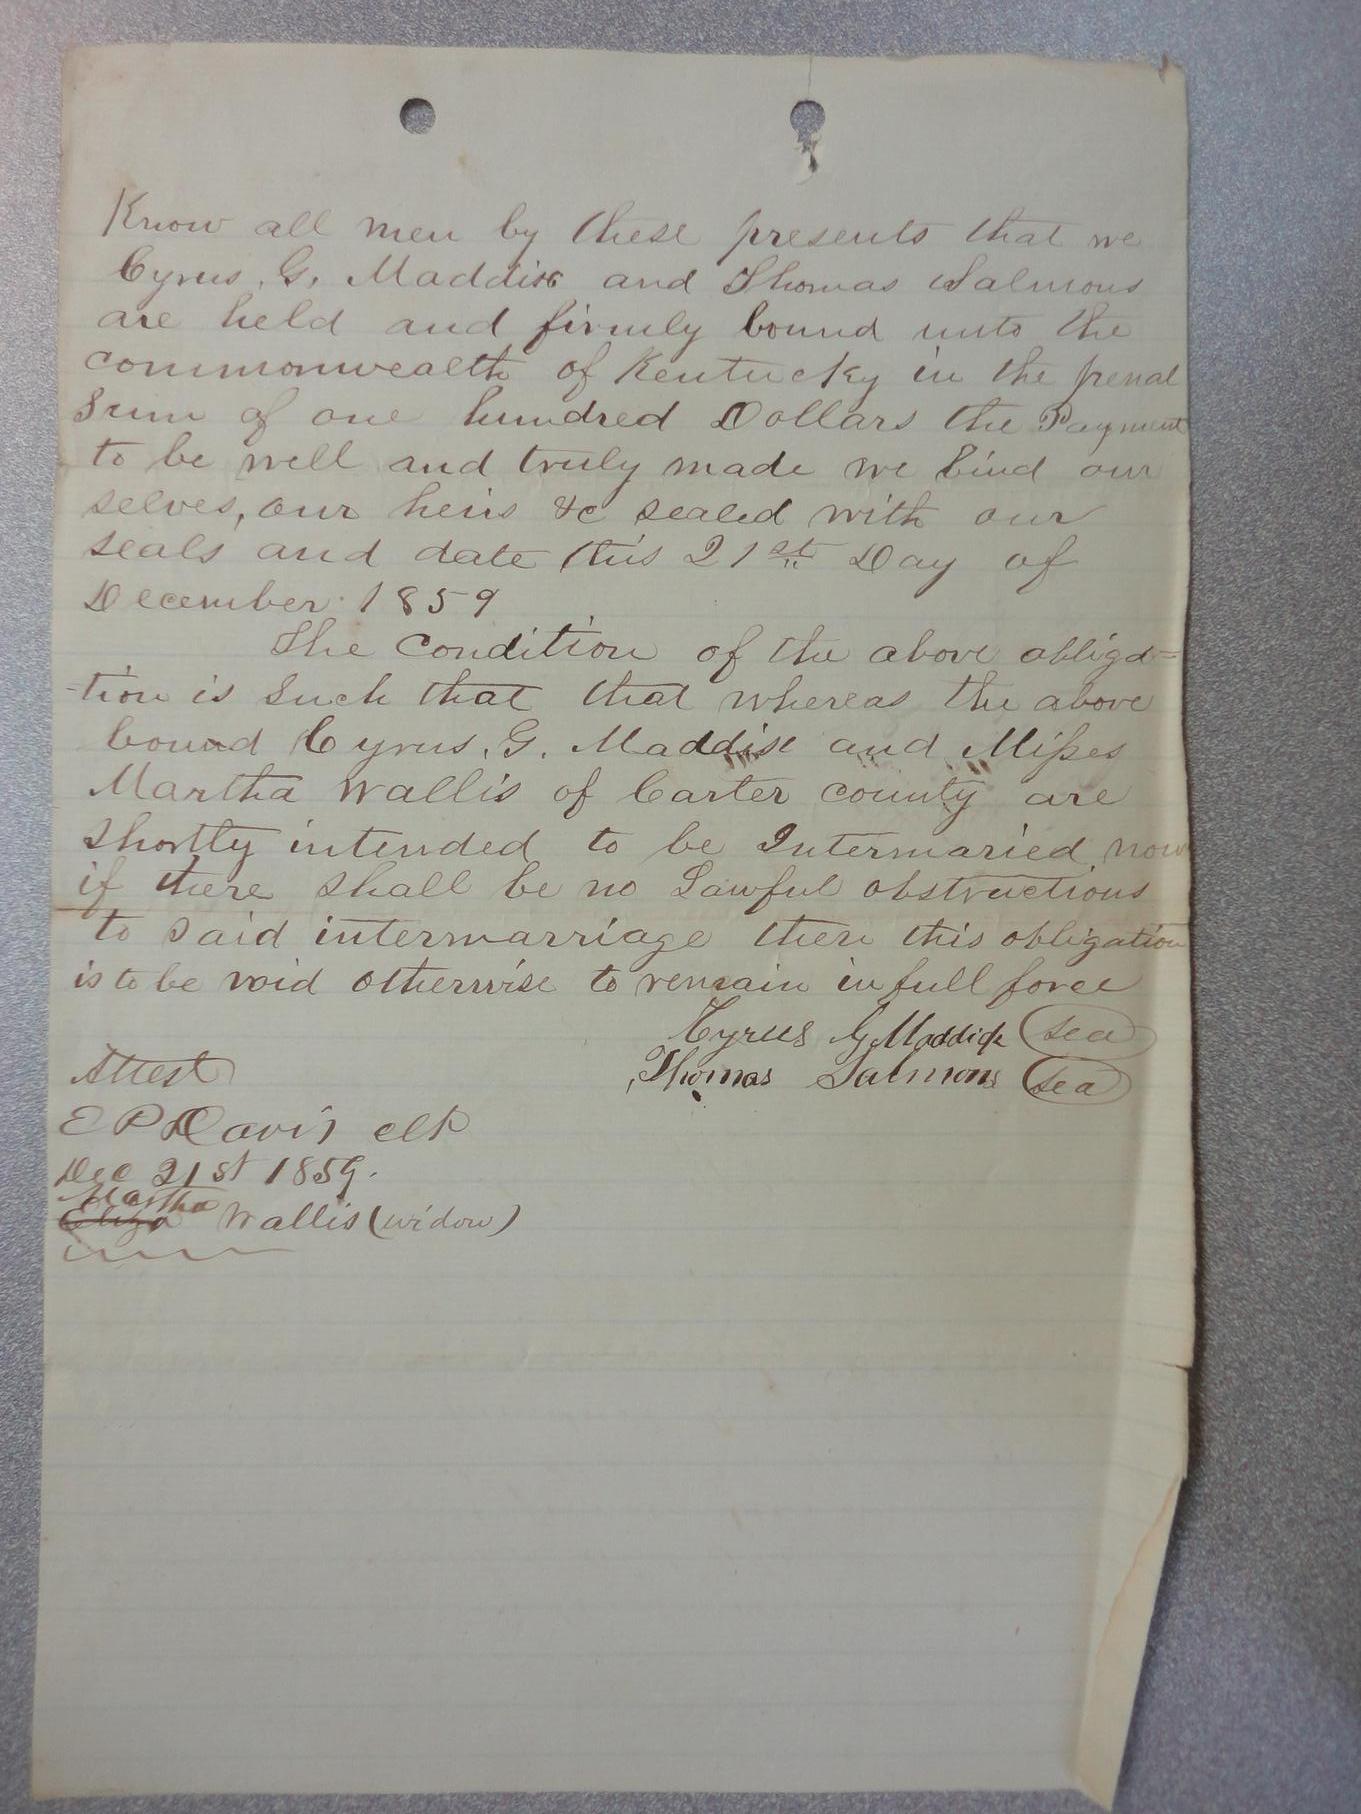 Know all men by these presents that we
Cyrus, G, Maddix and Thomas Salmons
are held and firmly bound unto the
commonwealth of Kentucky in the penal
Sum of one hundred Dollars the Payment
to be well and truly made we bind our
selves, our heirs &c sealed with our
seals and date this 21st Day of
December 1859
The Condition of the above obliga=
-tion is Such that that whereas the above
bound Cyrus, G. Maddix and Misses
Martha Wallis of Carter county are
Shortly intended to be Intermaried now
if there shall be no Lawful obstructions
to said intermarriage then this obligation
is to be void otherwise to remain in full force
Cyrus G Maddick (Sea)
Thomas Salmons (Sea)
Attest
E P Davis clk
Dec 21st 1859.
Martha
Eliza Wallis (widow)